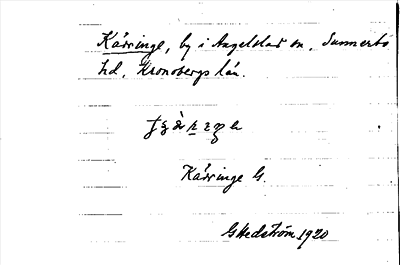 Kårringe, by i Angelstad sn, Sunnerbo
hd, Kronobergs län.
Kårringe G.
G Hedström 1920